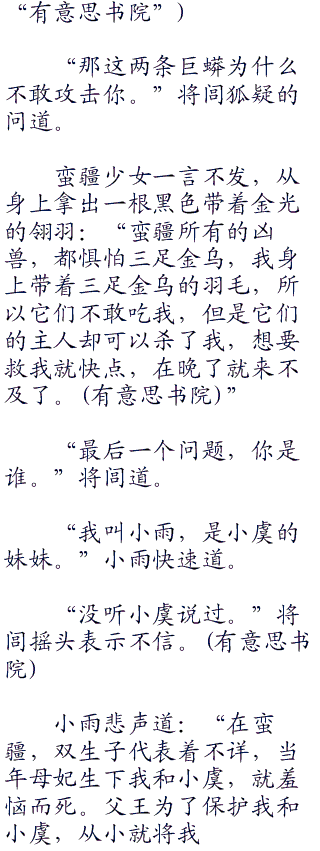 “有意思书院”)
“那这两条巨蟒为什么
不敢攻击你。”将闾狐疑的
问道。
蛮疆少女一言不发，从
身上拿出一根黑色带着金光
的翎羽：“蛮疆所有的凶
兽，都惧怕三足金乌，我身
上带着三足金乌的羽毛，所
以它们不敢吃我，但是它们
的主人却可以杀了我，想要
救我就快点，在晚了就来不
及了。(有意思书院)”
“最后一个问题，你是
谁。”将闾道。
“我叫小雨，是小虞的
妹妹。”小雨快速道。
“没听小虞说过。”将
闾摇头表示不信。(有意思书
院)
小雨悲声道：“在蛮
疆，双生子代表着不详，当
年母妃生下我和小虞，就羞
恼而死。父王为了保护我和
小虞，从小就将我